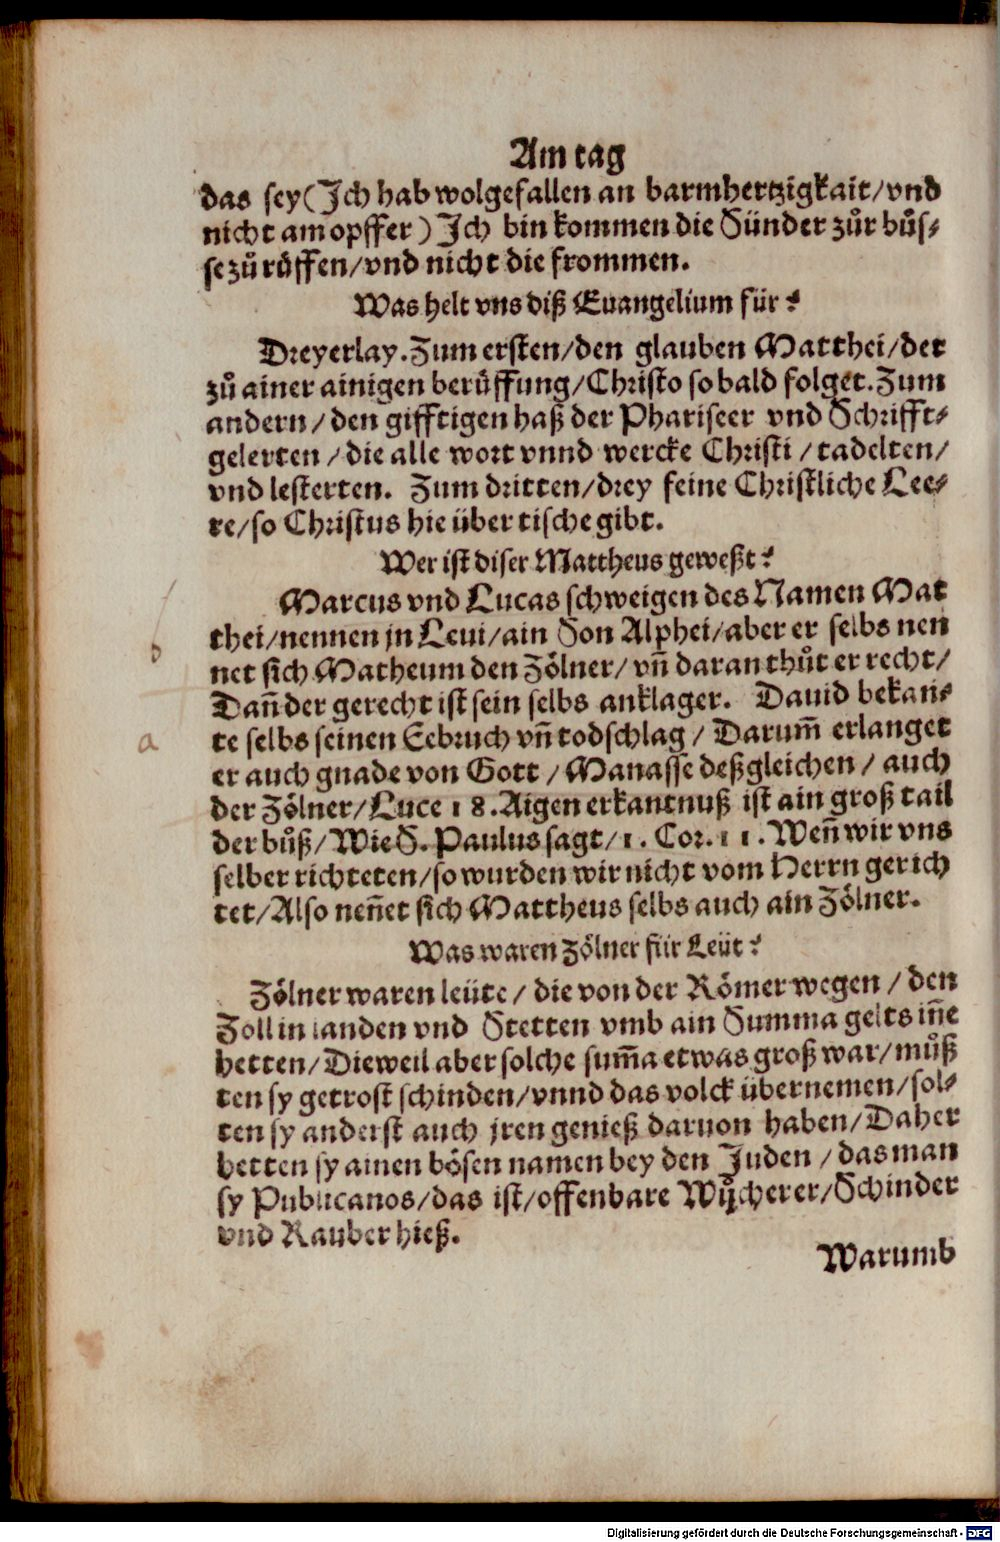 Am tag
das sey (Jch hab wolgefallen an barmhertzigkait/vnd
nicht am opffer) Jch bin kommen die Sünder zůr bůs-
se zů růffen/vnd nicht die frommen.
Was helt vns diß Euangelium für?
Dreyerlay. Zum ersten/den glauben Matthei/der
zů ainer ainigen berůffung/Christo so bald folget. Zum
andern/den gifftigen haß der Phariseer vnd Schrifft-
gelerten/die alle wort vnnd wercke Christi/tadelten/
vnd lesterten. Zum dritten/drey feine Christliche Lee-
re/so Christus hie über tische gibt.
Wer ist diser Mattheus geweßt?
Marcus vnd Lucas schweigen des Namen Mat
thei/nennen jn Leui/ain Son Alphei/aber er selbs nen
net sich Matheum den Zölner/vn̄ daran thůt er recht/
Dan̄ der gerecht ist sein selbs anklager. Dauid bekan-
te selbs seinen Eebruch vn̄ todschlag/Darum̄ erlanget
er auch gnade von Gott/Manasse deßgleichen/auch
der Zölner/Luce 18. Aigen erkantnuß ist ain groß tail
der bůß/Wie S. Paulus sagt/1. Cor. 11. Wen̄ wir vns
selber richteten/so wurden wir nicht vom Herrn gerich
tet/Also nen̄et sich Mattheus selbs auch ain Zölner.
Was waren Zölner für Leüt?
Zölner waren leüte/die von der Römer wegen/den
Zoll in landen vnd Stetten vmb ain Summa gelts in̄e
hetten/Dieweil aber solche sum̄a etwas groß war/můß
ten sy getrost schinden/vnnd das volck übernemen/sol-
ten sy anderst auch jren genieß daruon haben/Daher
hetten sy ainen bösen namen bey den Juden/das man
sy Publicanos/das ist/offenbare Wůcherer/Schinder
vnd Rauber hieß.
Warumb
b
a
Digitalisierung gefördert durch die Deutsche Forschungsgemeinschaft - DFG